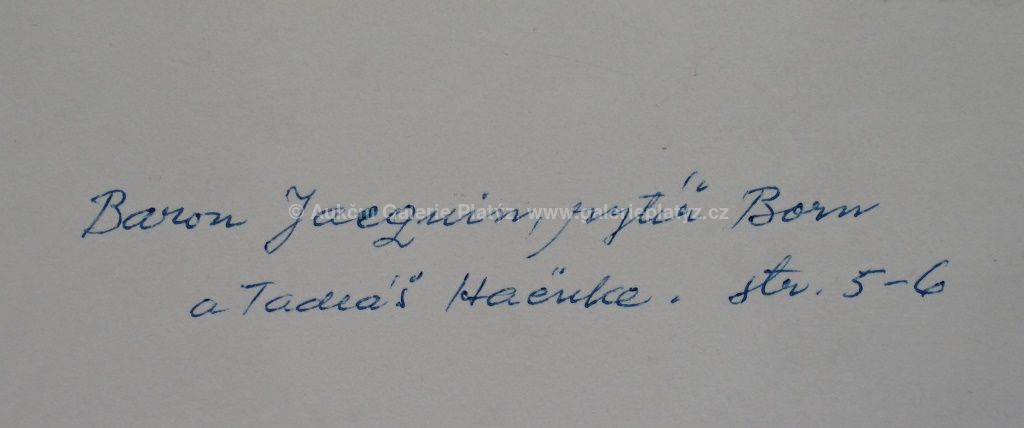 Baron Jacquin, rytíř Born
© Aukční Galerie Platýz www.galerieplatyz.cz
a Tadeáš Haënke. str. 5-6